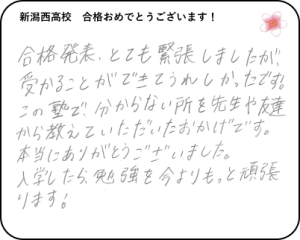 新潟西高校　合格おめでとうございます！
合格発表、とても緊張しましたが、
受かることができてうれしかったです！
この塾で、分からない所を先生や友達
から教えていただいたおかげです。
本当にありがとうございました。
入学したら、勉強を今よりもっと頑張
ります！